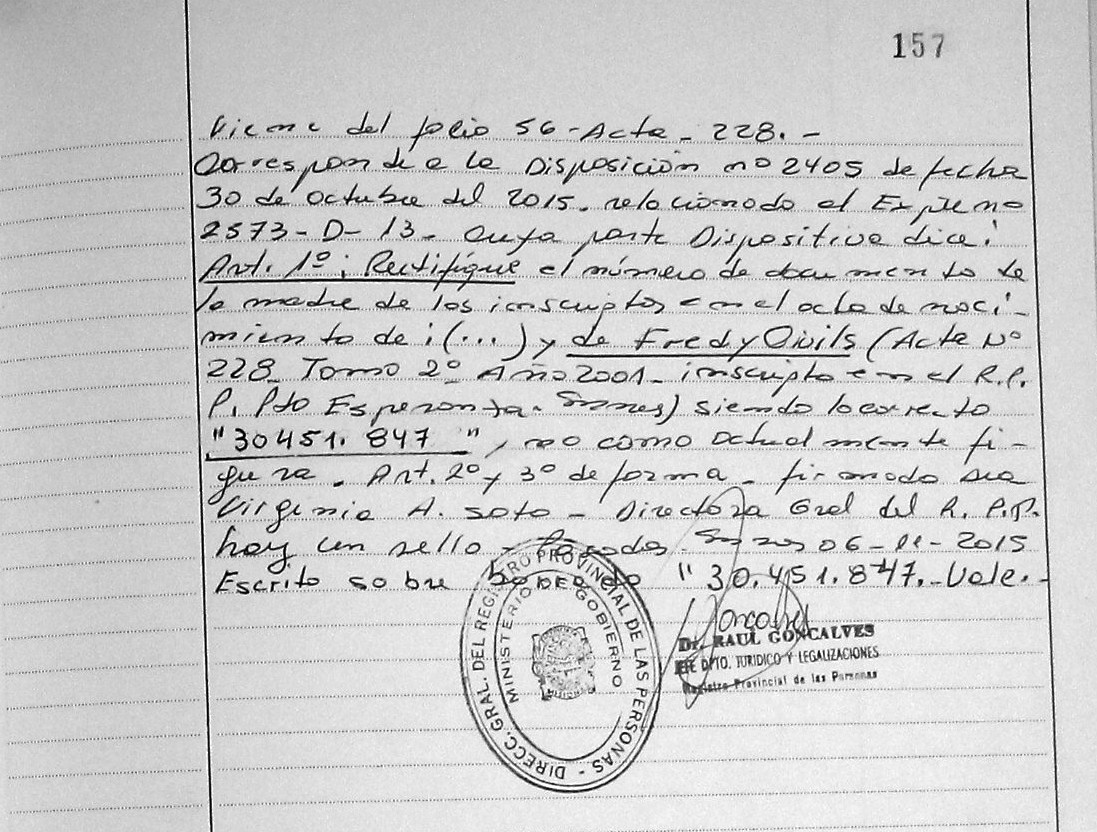 157
Viene del folio 56 - Acta - 228. -
Corresponde a la Disposición nº 2405 de fecha
30 de octubre del 2015. relacionado al Expte nº
2573 - D - 13 - cuya parte Dispositiva dice:
Art. 1º: Rectifíquе el número de documento de
la madre de los inscriptos en el acta de naci-
miento de: (...) y de Fredy Ovils (Acta Nº
228 - Tomo 2º Año 2001 - inscripto en el R.P.
P. Pto Esperanza - Smnes) siendo lo correcto
"30451.847 ", no como actualmente fi-
gura. Art. 2º y 3º de forma - firmado dra
Virginia A. Soto - Directora Gral del R. P.P.
hay un sello - Posadas Smnes 06-11-2015
Escrito sobre borrado "30.451.847.- Vale. -
DIRECC. GRAL. DEL REGISTRO PROVINCIAL DE LAS PERSONAS -
MINISTERIO DE GOBIERNO
Dr. RAUL GONCALVES
JEFE DPTO. JURIDICO Y LEGALIZACIONES
Registro Provincial de las Personas